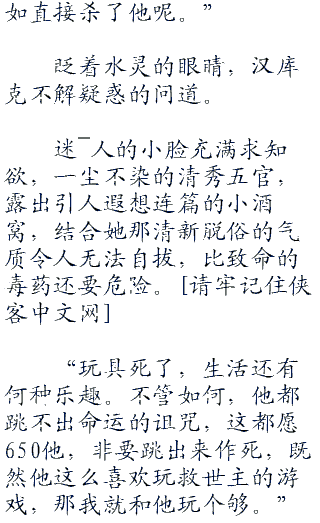 如直接杀了他呢。”
眨着水灵的眼睛，汉库
克不解疑惑的问道。
迷¯人的小脸充满求知
欲，一尘不染的清秀五官，
露出引人遐想连篇的小酒
窝，结合她那清新脱俗的气
质令人无法自拔，比致命的
毒药还要危险。[请牢记住侠
客中文网]
“玩具死了，生活还有
何种乐趣。不管如何，他都
跳不出命运的诅咒，这都愿
650他，非要跳出来作死，既
然他这么喜欢玩救世主的游
戏，那我就和他玩个够。”